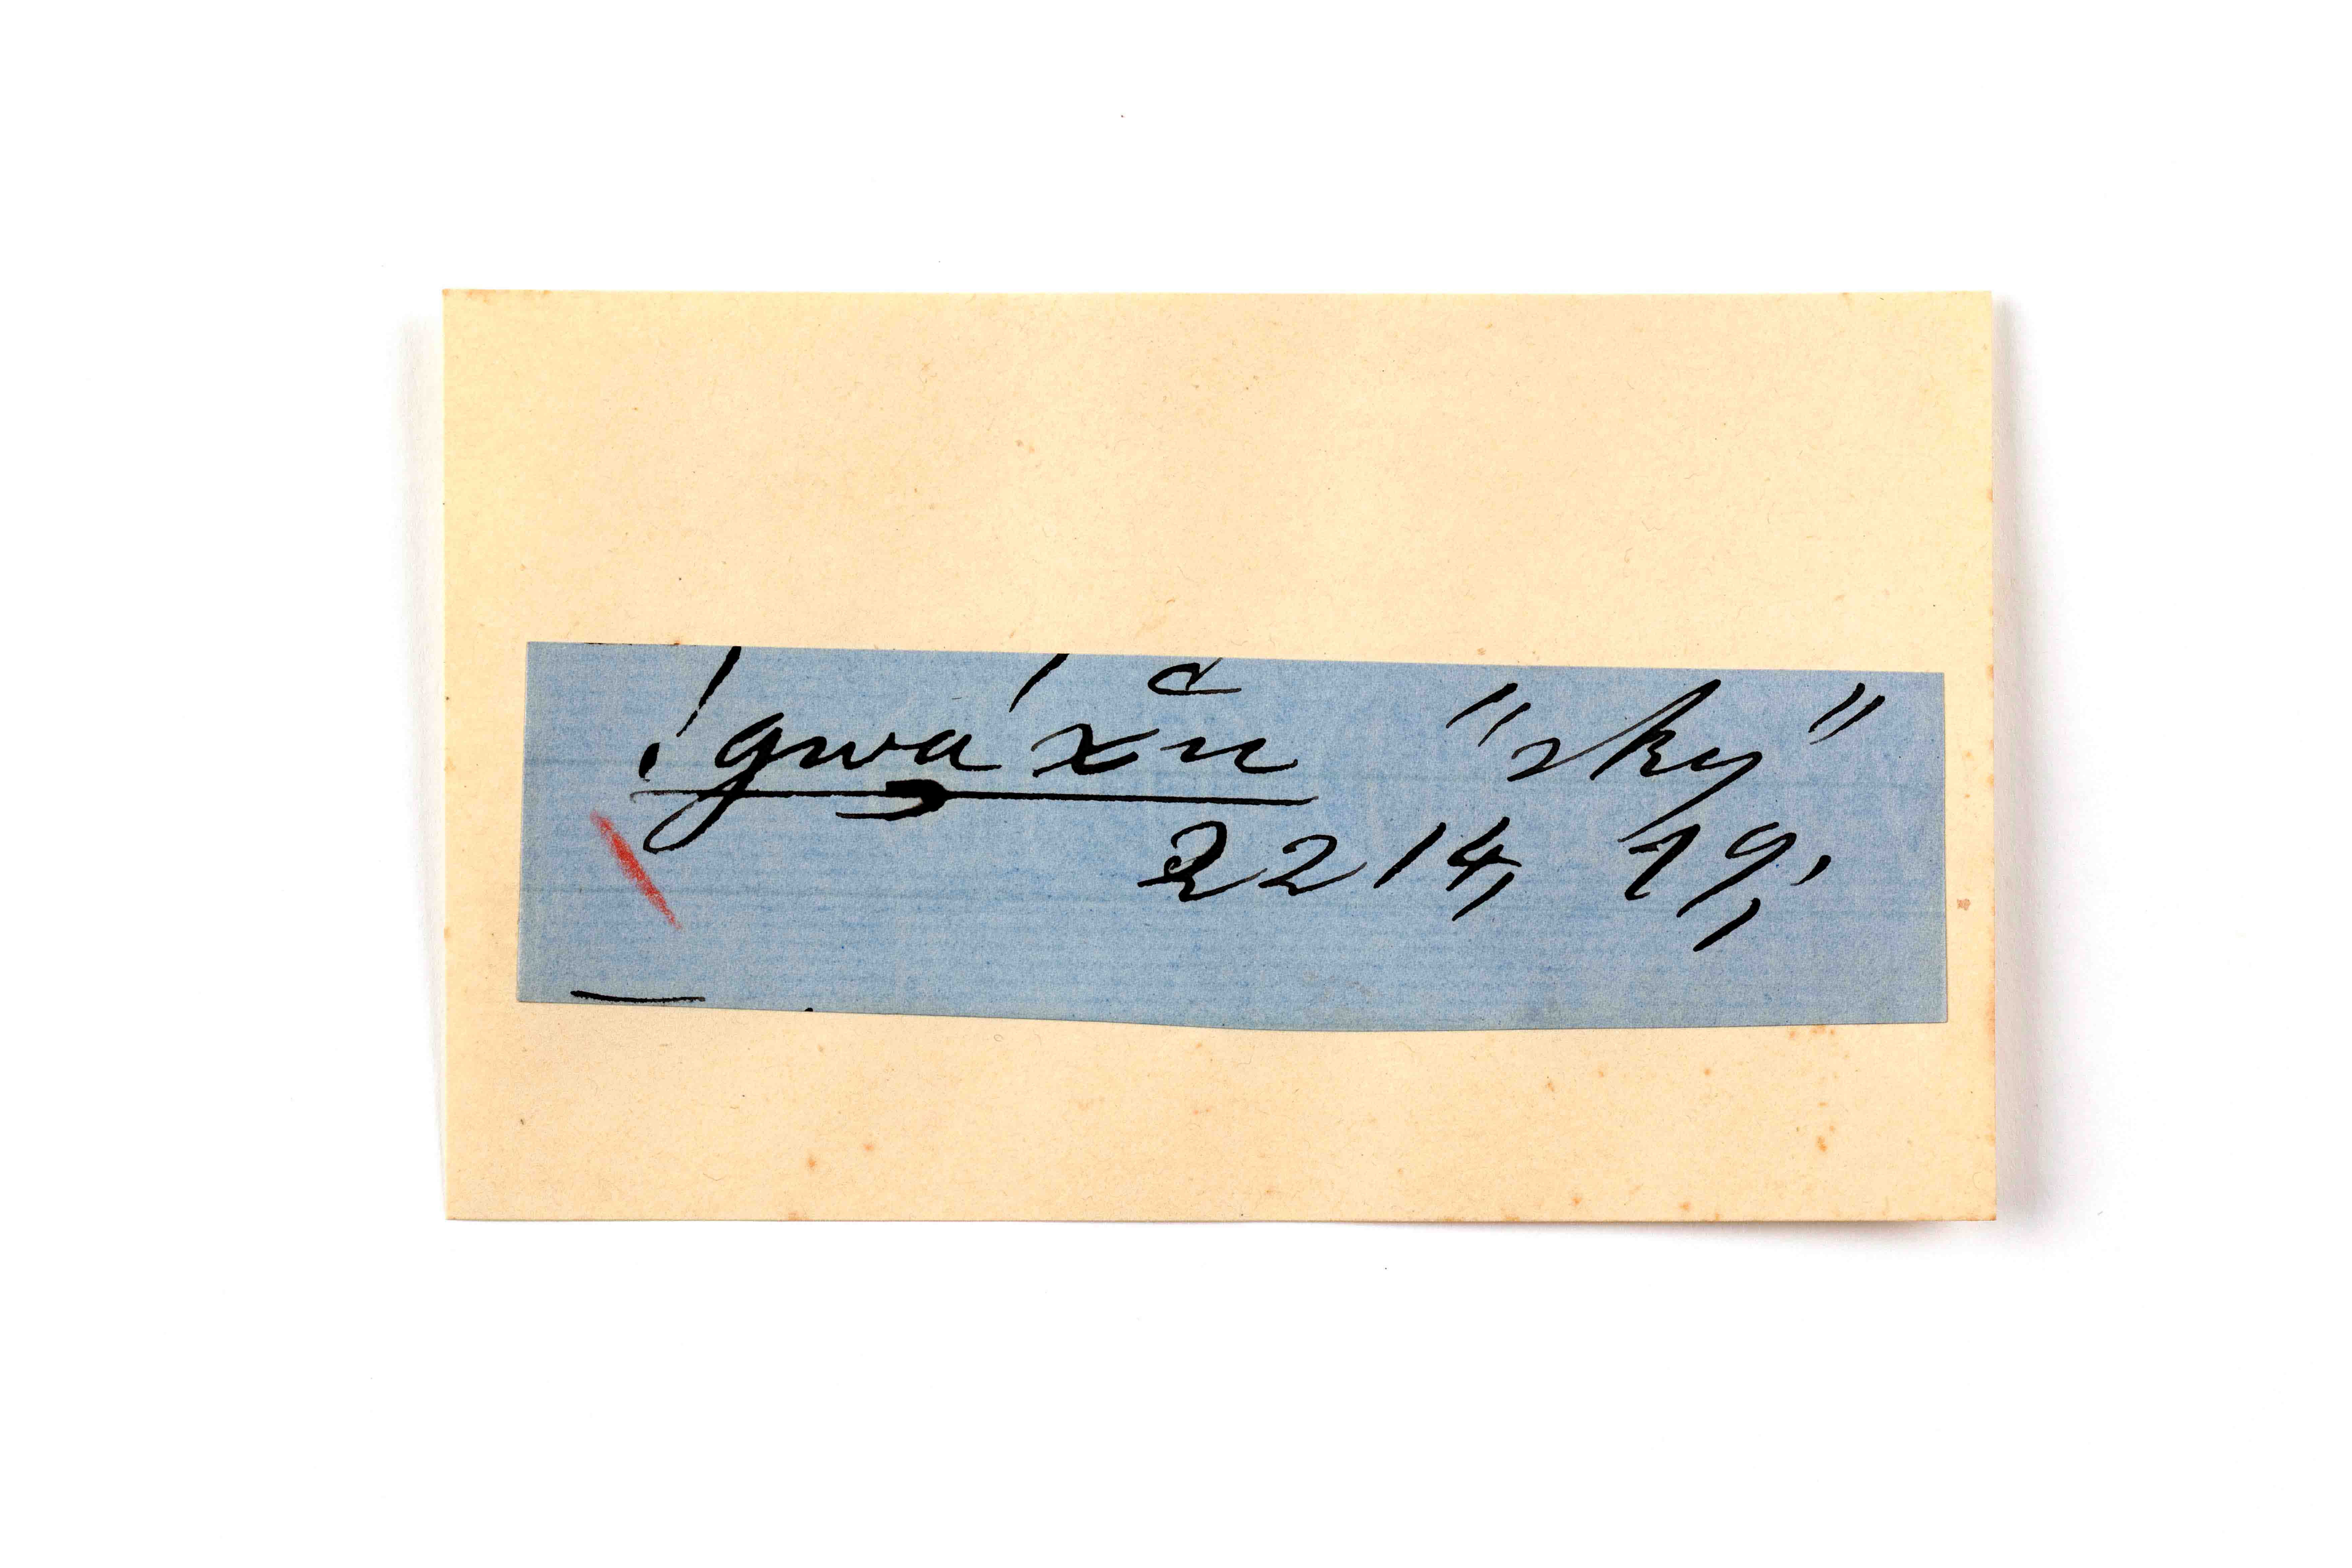 !gwa̠'xŭ "sky"
2214, 19,'